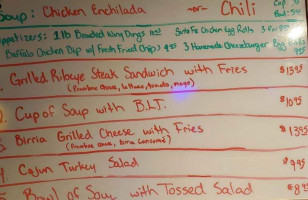 Soup: Chicken Enchilada -or- Chili
Appetizers: 1 lb Breaded Wing Dings Santa Fe Chicken Egg Rolls 3 For
Buffalo Chicken Dip w/ Fresh Fried Chips 3 Homemade Cheeseburger Egg Rolls
Grilled Ribeye Steak Sandwich with Fries $13.95
(Provolone cheese, lettuce, tomato, mayo)
2. Cup of Soup with B.L.T. $10.95
3. Birria Grilled Cheese with Fries $13.95
(Provolone cheese, birria Consommé)
4. Cajun Turkey Salad $9.95
5. Bowl of Soup with Tossed Salad